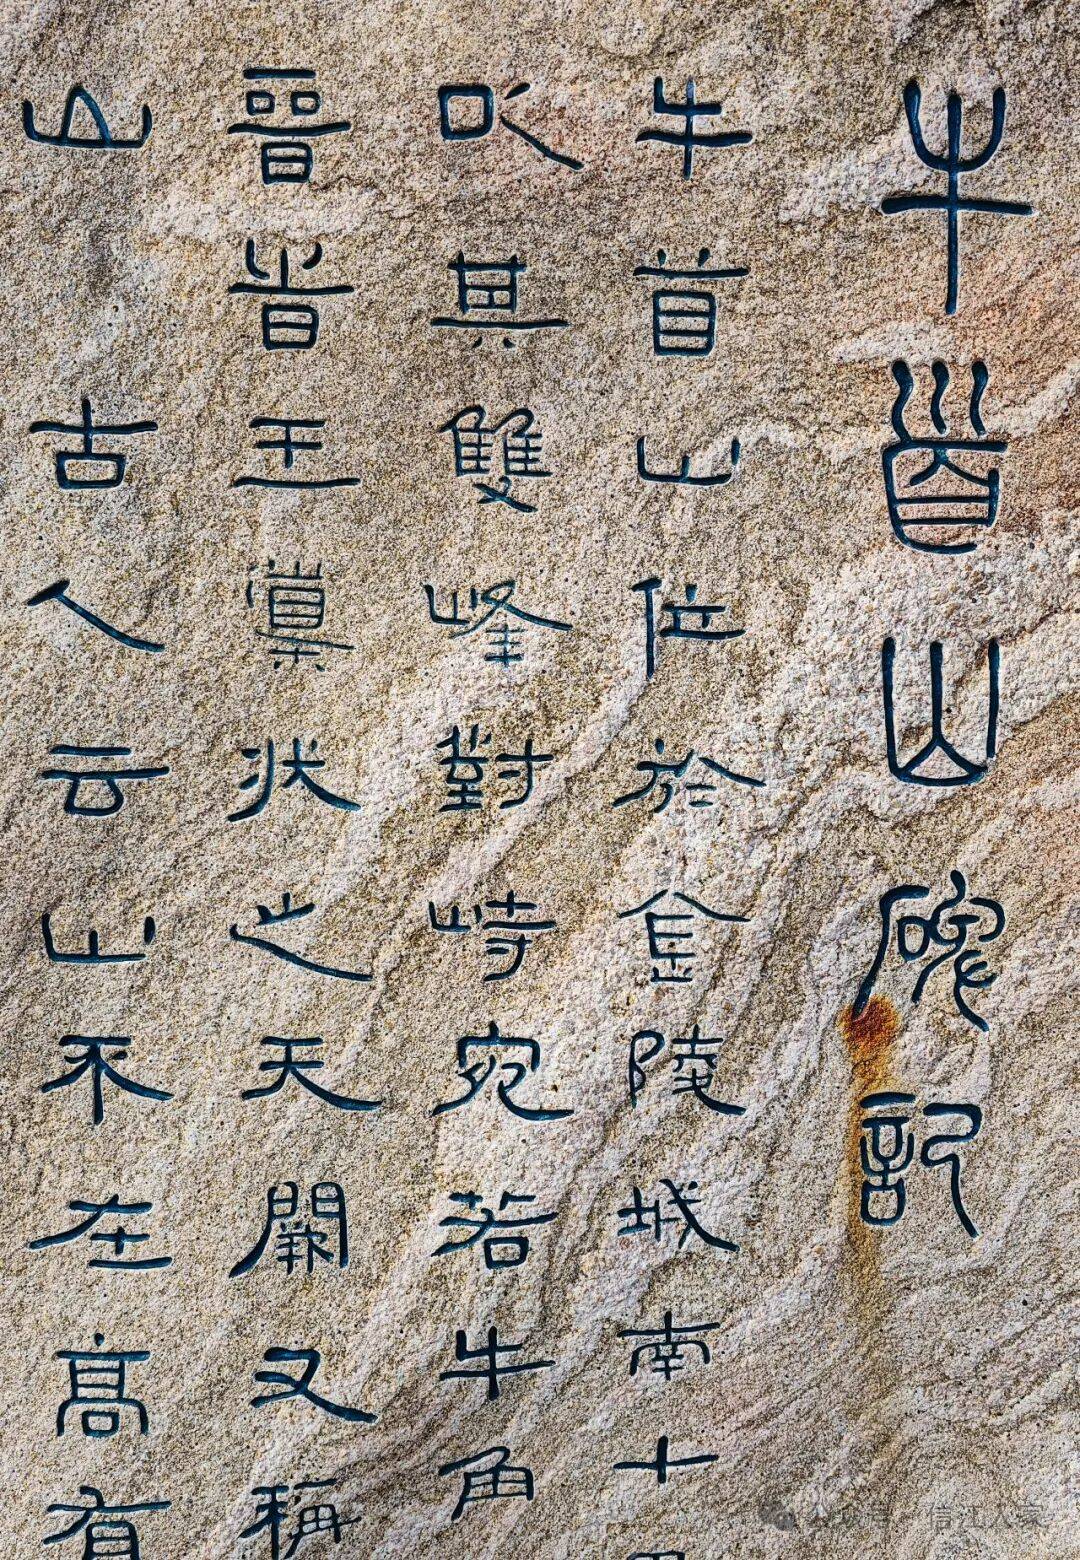 牛首山碑記
牛首山位於金陵城南十
以其雙峰對峙宛若牛角
晉旹王狀之天闕又稱
山古人云山不在高有
公众号 · 信江人家